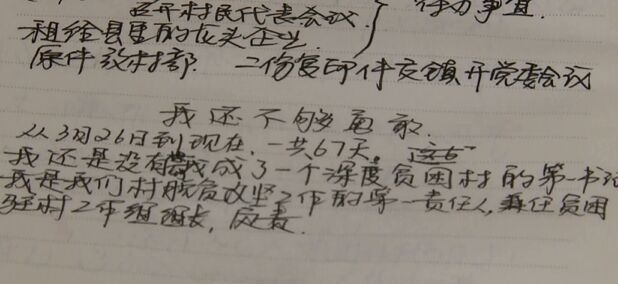 召开村民代表会议
待办事宜.
租给县里的龙头企业.
原件放村部. 二份复印件交镇开党委会议
我还不够勇敢.
从3月26日到现在,一共67天,这67
我还是没有 我成了一个深度贫困村的第一书记
我是我们村脱贫攻坚工作的第一责任人,兼任贫困
驻村工作组组长,应责.